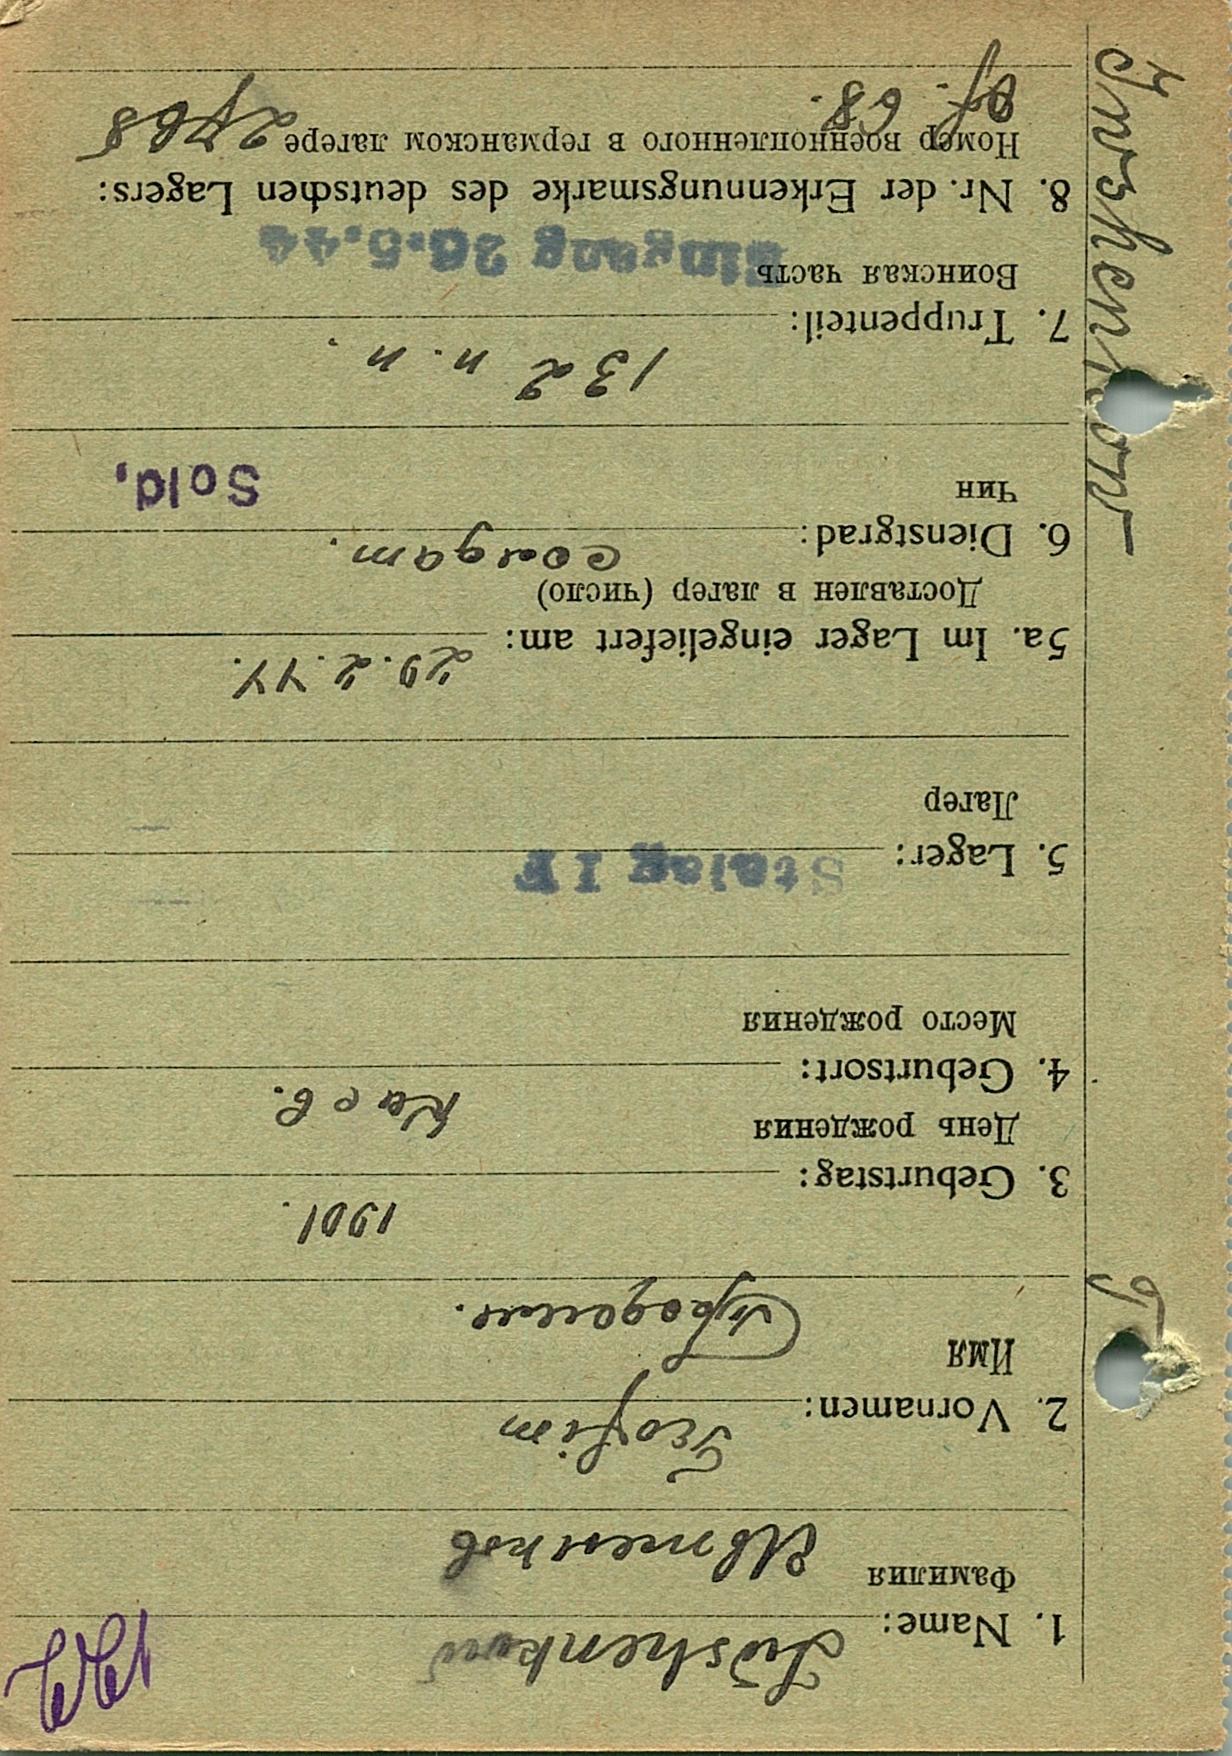 1. Name: Iwshenkow
Фамилия Ивженков
2. Vornamen: Trofim
Имя
3. Geburtstag: 1901.
День рождения
4. Geburtsort:
Место рождения
5. Lager: Stalag I F
Лагер
5a. Im Lager eingeliefert am: 29.2.44.
Доставлен в лагер (число)
6. Dienstgrad: солдат.
Чин Sold.
7. Truppenteil: 132 п. п.
Воинская часть Eingang 26.5.44
8. Nr. der Erkennungsmarke des deutschen Lagers:
Номер военнопленного в германском лагере
68.